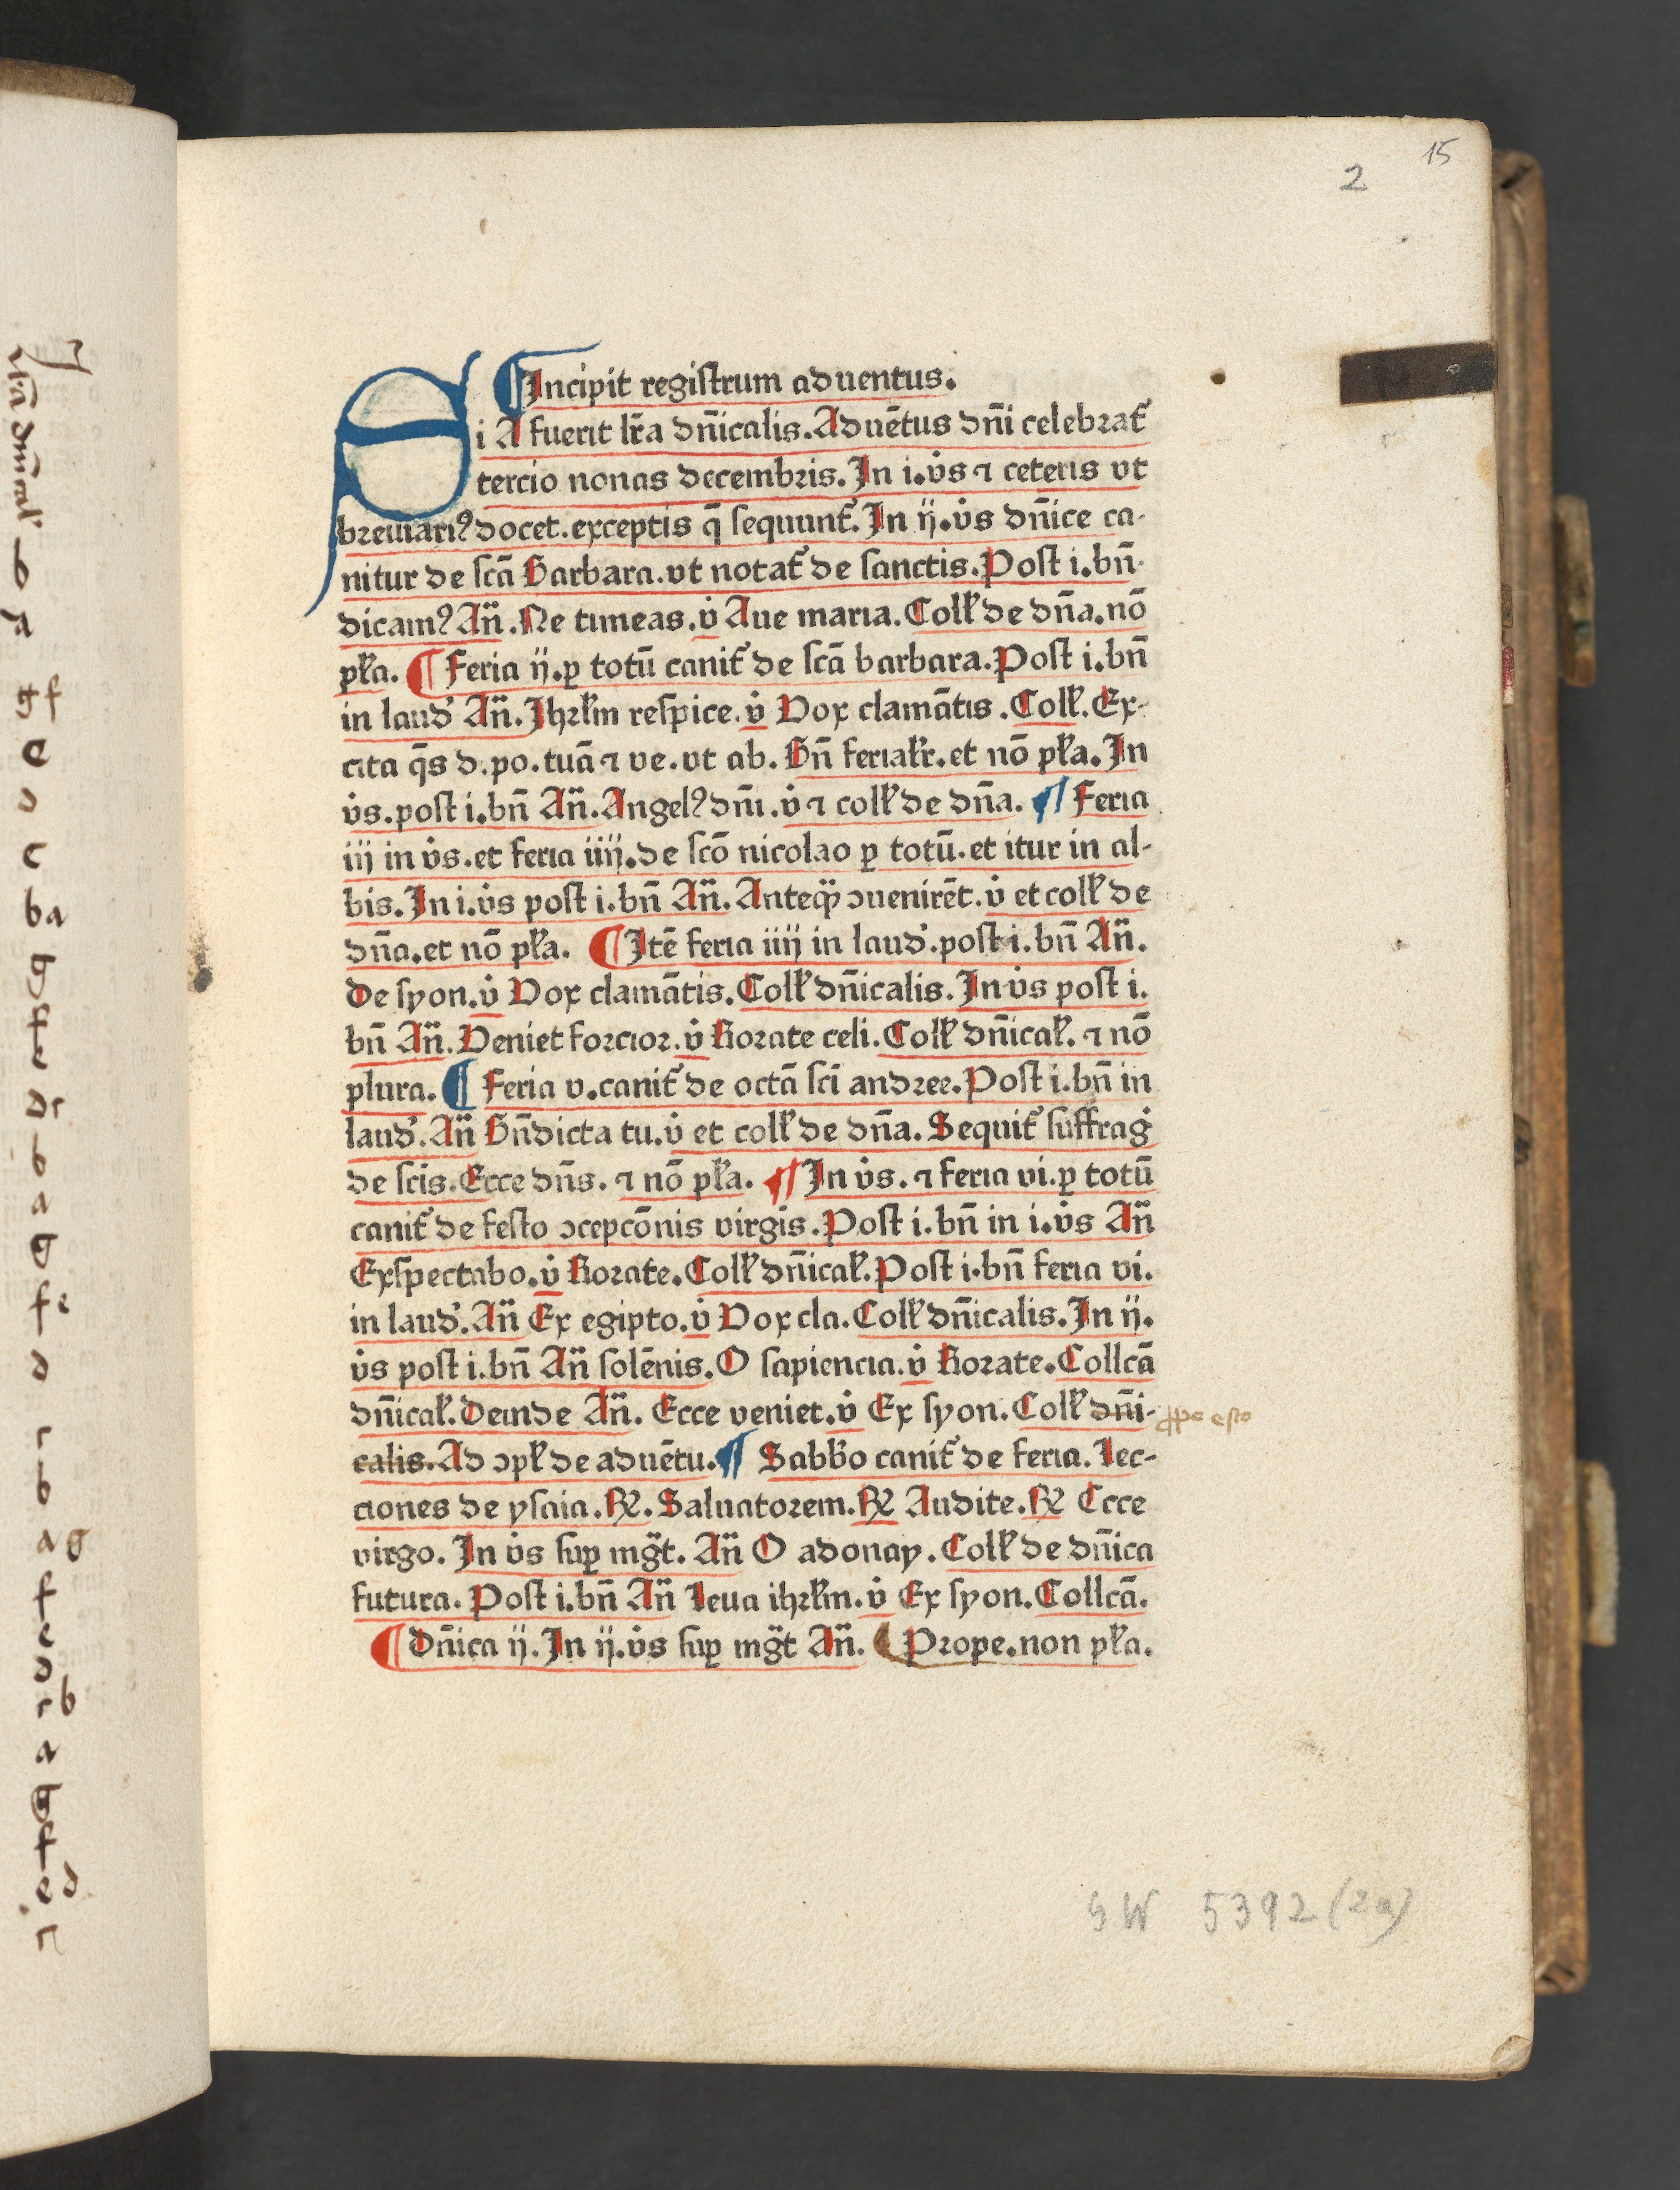 15
2
¶Incipit registrum aduentus.
Si A fuerit lr̄a dn̄icalis. Aduētus dn̄i celebrat᷑
tercio nonas decembris. In i. v̇s ⁊ ceteris vt
breuiariꝰ docet. exceptis q̄ sequunt᷑. In ij. v̇s dn̄ice ca-
nitur de scā Barbara. vt notat᷑ de sanctis. Post i. bn̄-
dicamꝰ An̄. Ne timeas. v̇ Aue maria. Coll̄ de dn̄a. nō
pl̄a. ¶ Feria ij. ꝑ totū canit᷑ de scā barbara. Post i. bn̄
in laud᷒ An̄. Jhrl̄m respice. v̇ Vox clamātis. Coll̄. Ex-
cita q̄s d. po. tuā ⁊ ve. vt ab. Bn̄ ferial̄r. et nō pl̄a. In
v̇s. post i. bn̄ An̄. Angelꝰ dn̄i. v̇ ⁊ coll̄ de dn̄a. ¶ Feria
iij in v̇s. et feria iiij. de scō nicolao ꝑ totū. et itur in al-
bis. In i. v̇s post i. bn̄ An̄. Anteqꝫ̄ ↄuenirēt. v̇ et coll̄ de
dn̄a. et nō pl̄a. ¶ Itē feria iiij in laud᷒. post i. bn̄ An̄.
De syon. v̇ Vox clamātis. Coll̄ dn̄icalis. In v̇s post i.
bn̄ An̄. Veniet forcior. v̇ Rorate celi. Coll̄ dn̄ical̄. ⁊ nō
plura. ¶ Feria v. canit᷑ de octā sci andree. Post i. bn̄ in
laud᷒. An̄ Bn̄dicta tu. v̇ et coll̄ de dn̄a. Sequit᷑ suffrag᷒
de scīs. Ecce dn̄s. ⁊ nō pl̄a. ¶ In v̇s. ⁊ feria vi. ꝑ totū
canit᷑ de festo ↄcepcōnis virgīs. Post i. bn̄ in i. v̇s An̄
Exspectabo. v̇ Rorate. Coll̄ dn̄ical̄. Post i. bn̄ feria vi.
in laud᷒. An̄ Ex egipto. v̇ Vox cla. Coll̄ dn̄icalis. In ij.
v̇s post i. bn̄ An̄ solēnis. O sapiencia. v̇ Rorate. Collcā
dn̄ical̄. Deinde An̄. Ecce veniet. v̇ Ex syon. Coll̄ dn̄i- ꝓpe esto
calis. Ad ↄpl̄ de aduētu. ¶ Sabb̄o canit᷑ de feria. Lec-
ciones de ysaia. ℞. Saluatorem. ℞ Audite. ℞ Ecce
virgo. In v̇s suꝑ mg̃t. An̄ O adonay. Coll̄ de dn̄ica
futura. Post i. bn̄ An̄ Leua ihrl̄m. v̇ Ex syon. Collcā.
¶ Dn̄ica ij. In ij. v̇s suꝑ mg̃t An̄. Prope. non pl̄a.
GW 5392 (2a)
b
gf
e
d
c
ba
g
f
e
b
a
g
fe
d
c
b
ag
f
e
d
cb
a
g
f
ed
c